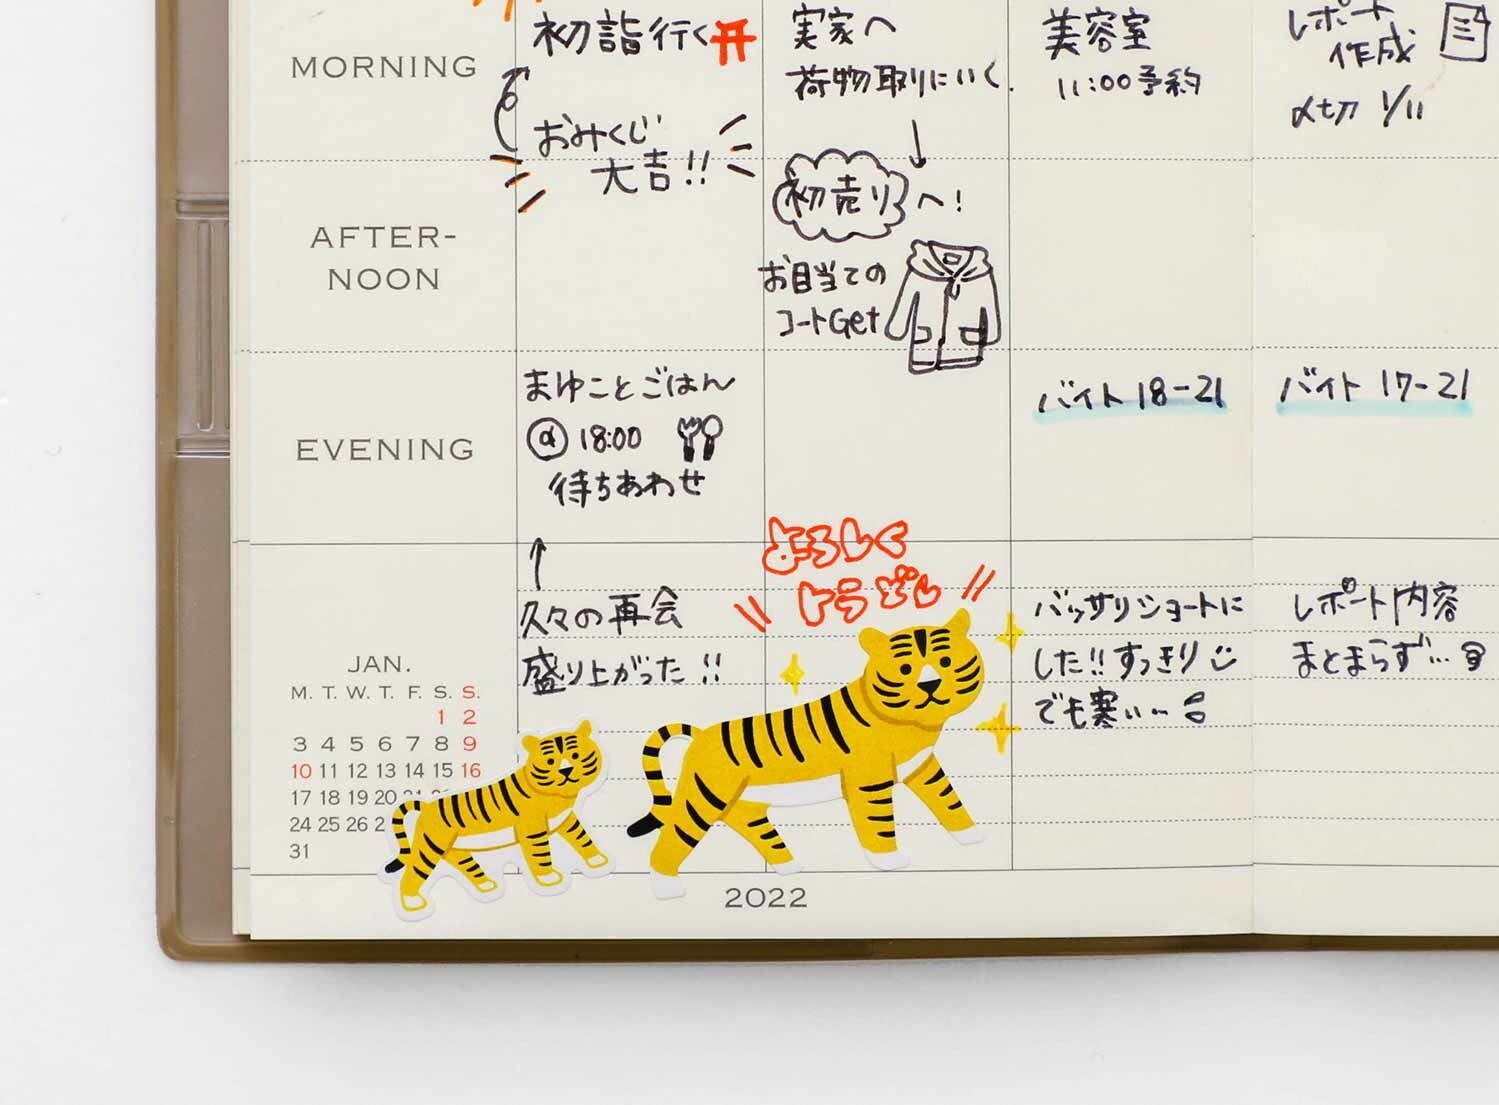 MORNING
初詣行く
おみくじ
大吉!!
実家へ
荷物取りにいく.
初売りへ!
美容室
11:00予約
レポート
作成
〆切 1/11
AFTER-
NOON
お目当ての
コートGet
EVENING
まゆことごはん
@18:00
待ちあわせ
バイト 18-21
バイト 17-21
久々の再会
盛り上がった!!
よろしく
トラどし
バッサリショートに
した!!すっきり
でも寒いー
レポート内容
まとまらず…
JAN.
M. T. W. T. F. S. S.
1 2
3 4 5 6 7 8 9
10 11 12 13 14 15 16
17 18 19 20
24 25 26 2
31
2022